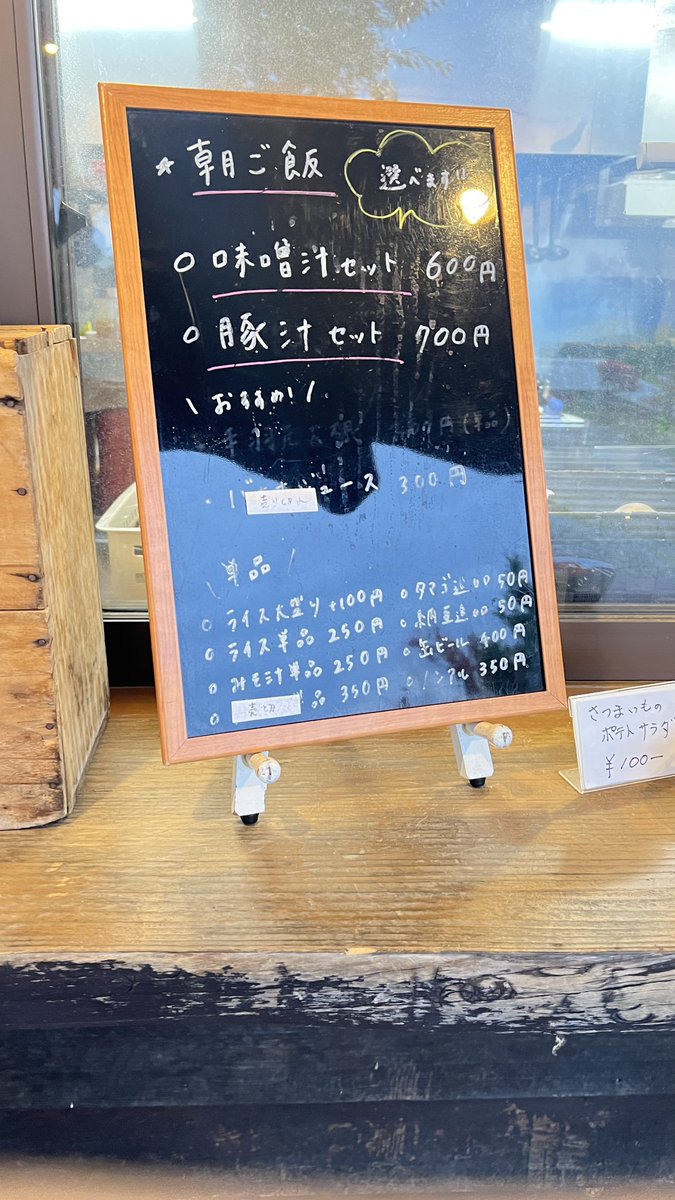 ★朝ご飯
選べます!!
○味噌汁セット 600円
○豚汁セット 700円
\おすすめ!/
円(単品)
ジュース 300円
売り切れ
\単品/
○ライス大盛り +100円
○ライス単品 250円
○みそ汁単品 250円
○ 売切 品 350円
○タマゴ 50円
○納豆 50円
○缶ビール 400円
○ノンアル 350円
さつまいもの
ポテトサラダ
¥100-